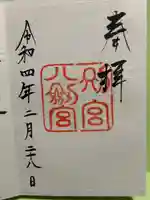 奉拝
別宮
八剣宮
令和四年二月二十八日